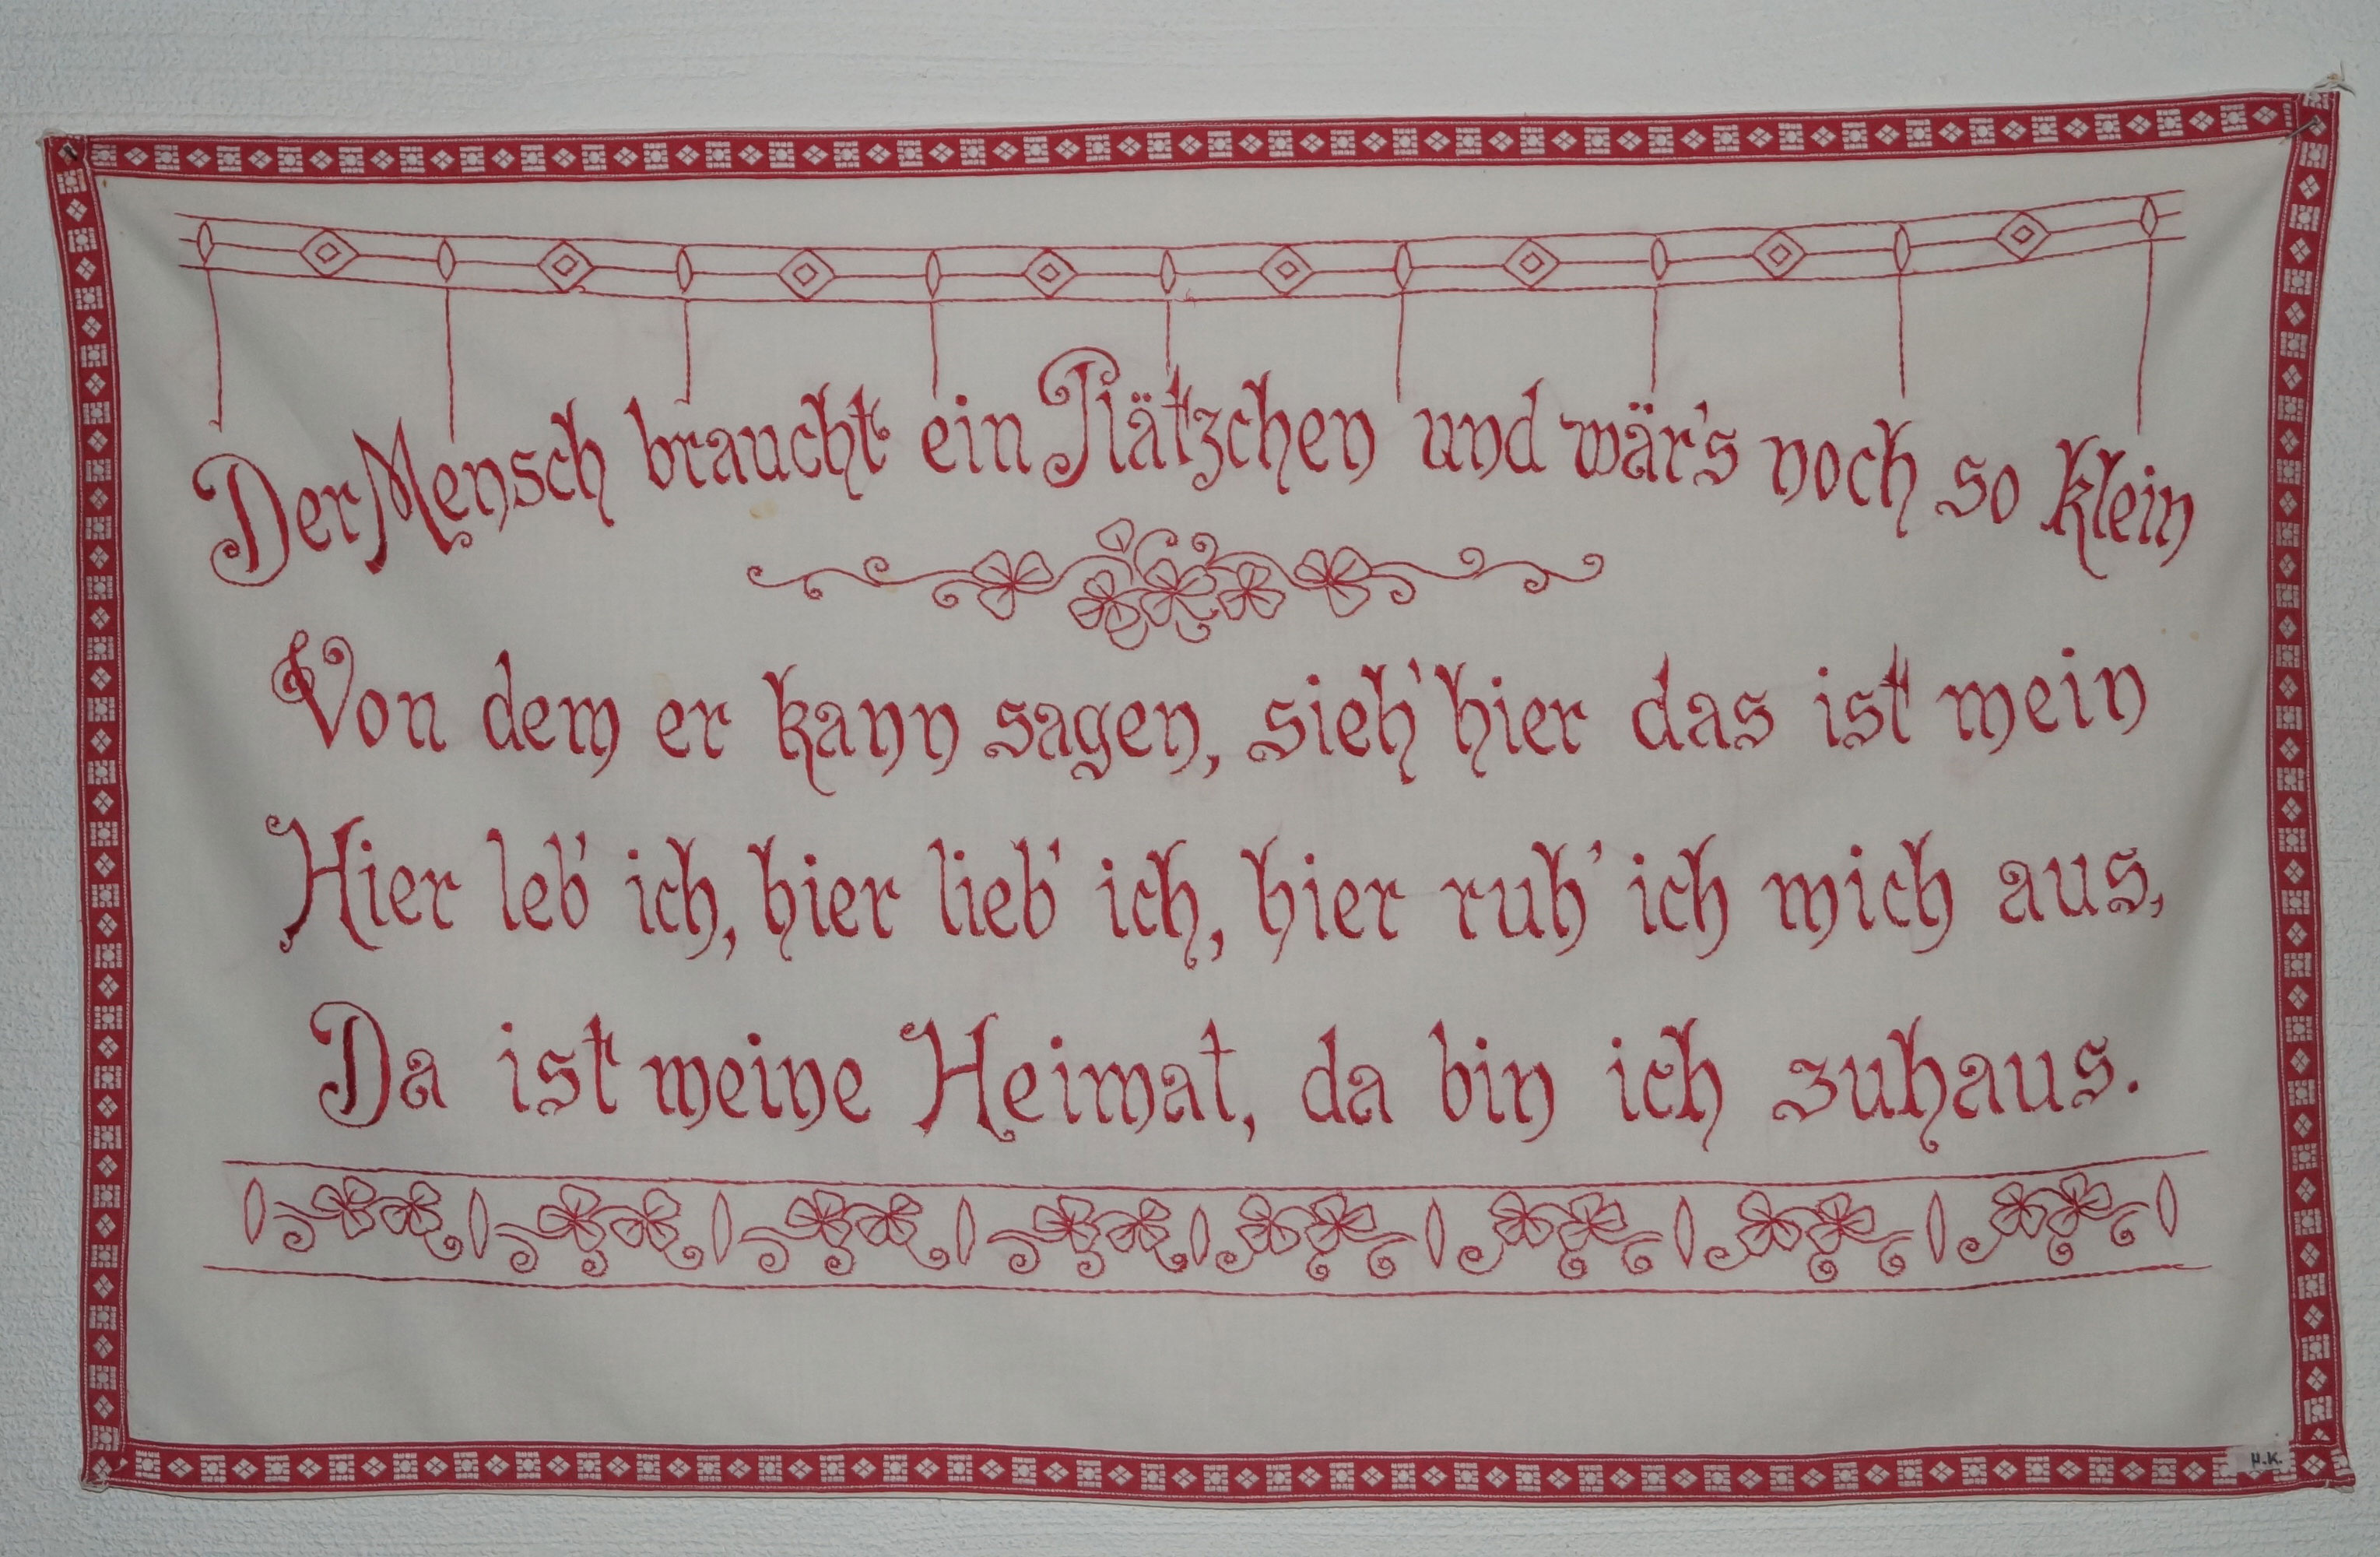 Der Mensch braucht ein Plätzchen und wär's noch so klein
Von dem er kann sagen, sieh' hier das ist mein
Hier leb' ich, hier lieb' ich, hier ruh' ich mich aus,
Da ist meine Heimat, da bin ich zuhaus.
M.K.